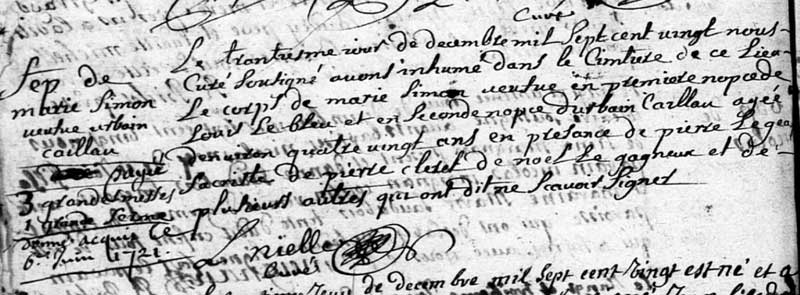 Curé
Sep de
marie Simon
veufue urbain
caillau
payé
3 grandes messes
1 grande
acquit ce
6e Juin 1721.
Le trantiesme iour de decembre mil Sept cent vingt nous
Curé Soutigné avons inhumé dans le Cimtiere de ce Lieu
Le corps de marie Simon veufue en premiere nopce de
Louis Le bleu et en Seconde nopce durbain Caillau agéé
denuiron quatre vingt ans en présance de pierre Le
Sacriste de pierre cleret de noel Le gagneux et de
plusieurs autres qui ont dit ne Scauoir Signer
Curé
de decembre mil Sept cent vingt est né et